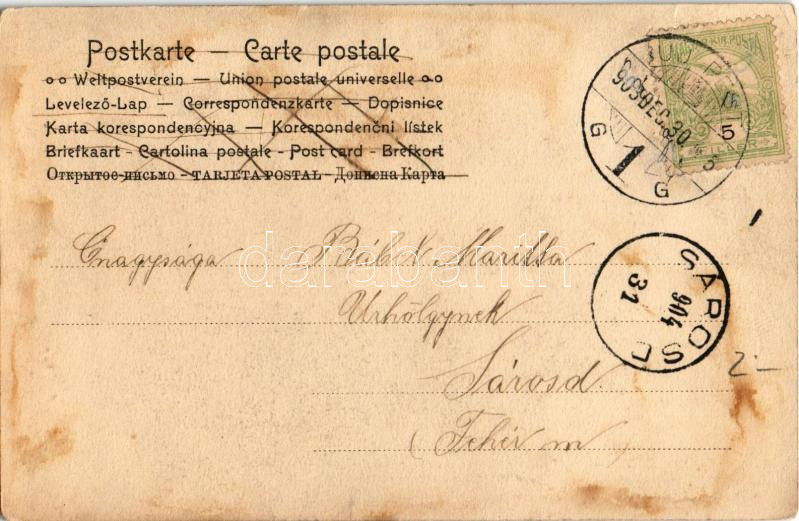 Postkarte — Carte postale
Weltpostverein — Union postale universelle
Levelező-Lap — Correspondenzkarte — Dopisnice
Karta korespondencyjna — Korespondenční lístek
Briefkaart - Cartolina postale - Post card - Brefkort
Открытое письмо - TARJETA POSTAL - Дописна Карта
903 DEC. 30
5
SÁROSD
904
31
Őnagysága Márissa
Urhölgynek
Sárosd
(Fehér m)
2-
darabanth